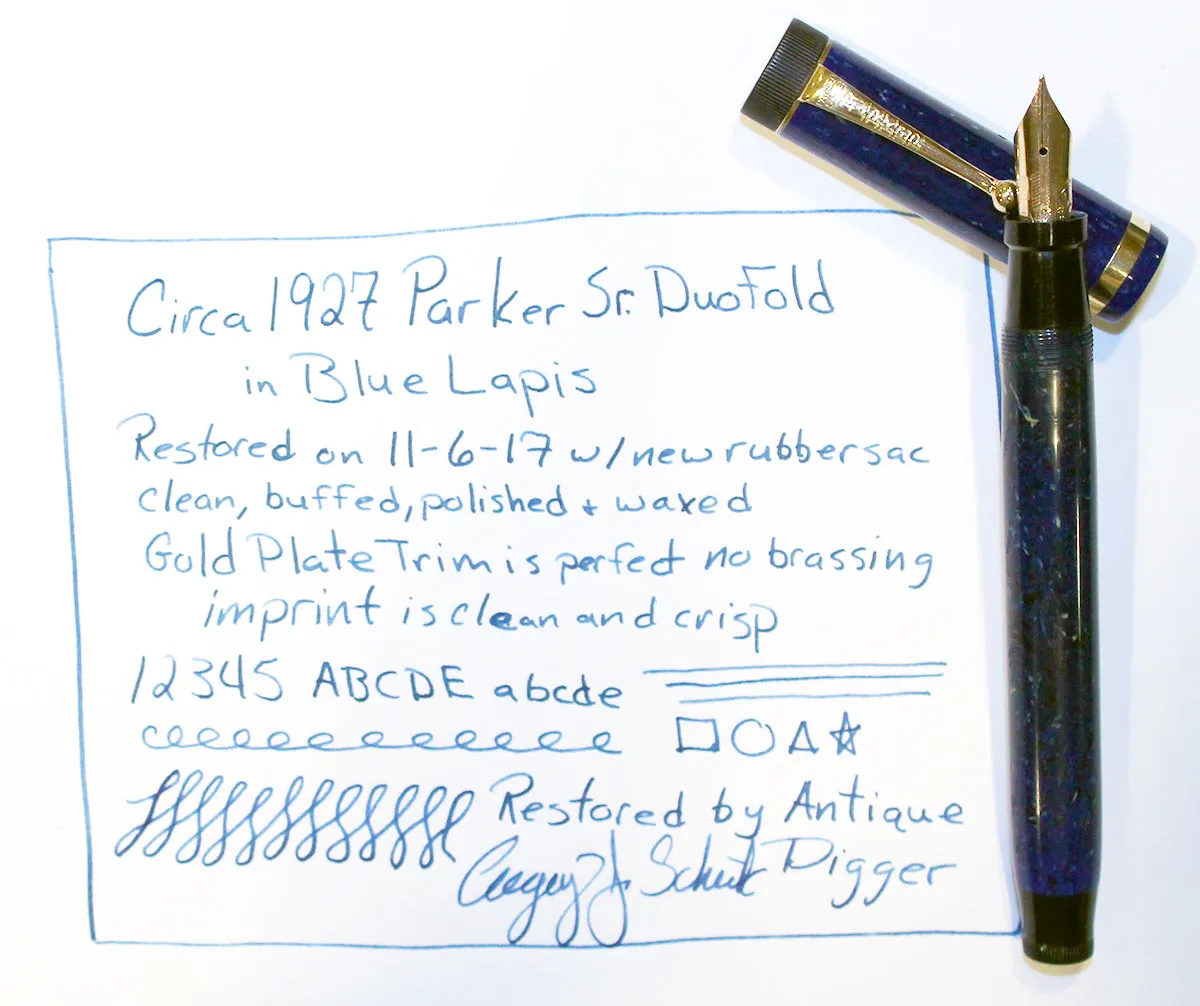 Circa 1927 Parker Sr. Duofold
in Blue Lapis
Restored on 11-6-17 w/new rubber sac
clean, buffed, polished + waxed
Gold Plate Trim is perfect no brassing
imprint is clean and crisp
12345 ABCDE abcde
Restored by Antique
Digger